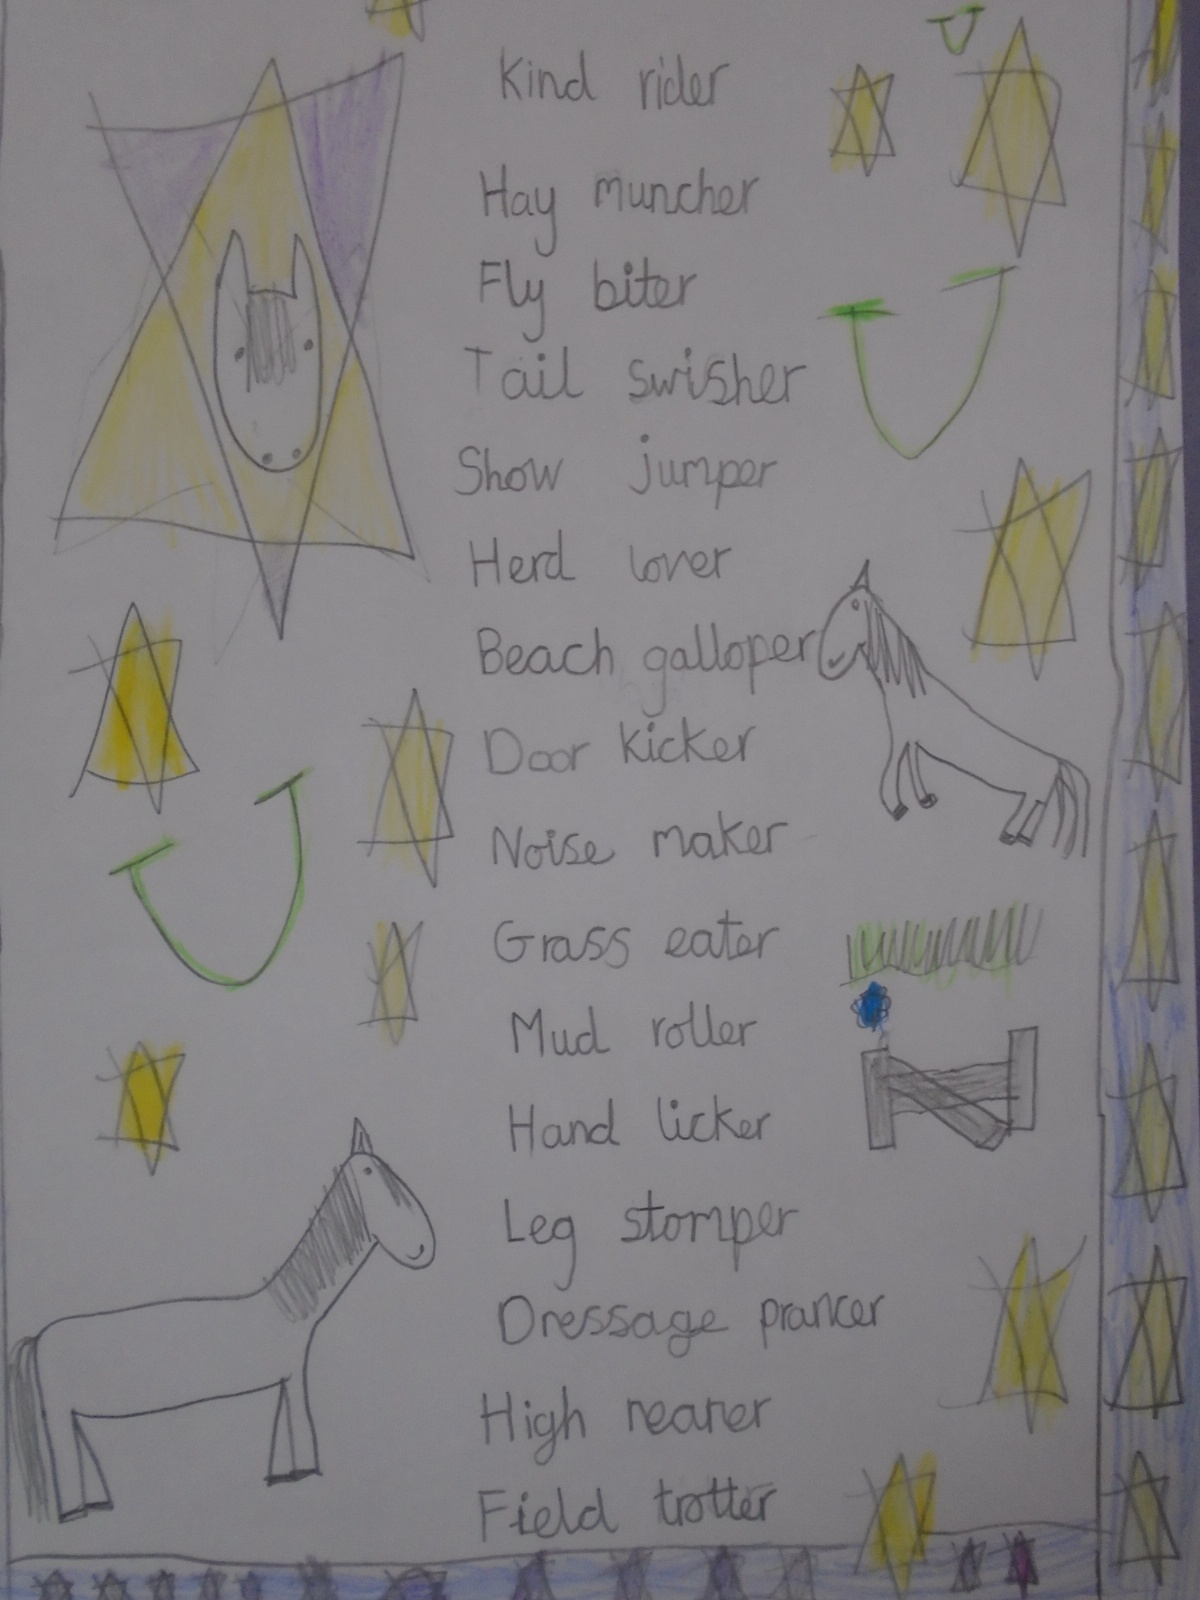 Kind rider
Hay muncher
Fly biter
Tail swisher
Show jumper
Herd lover
Beach galloper
Door kicker
Noise maker
Grass eater
Mud roller
Hand licker
Leg stomper
Dressage prancer
High rearer
Field trotter